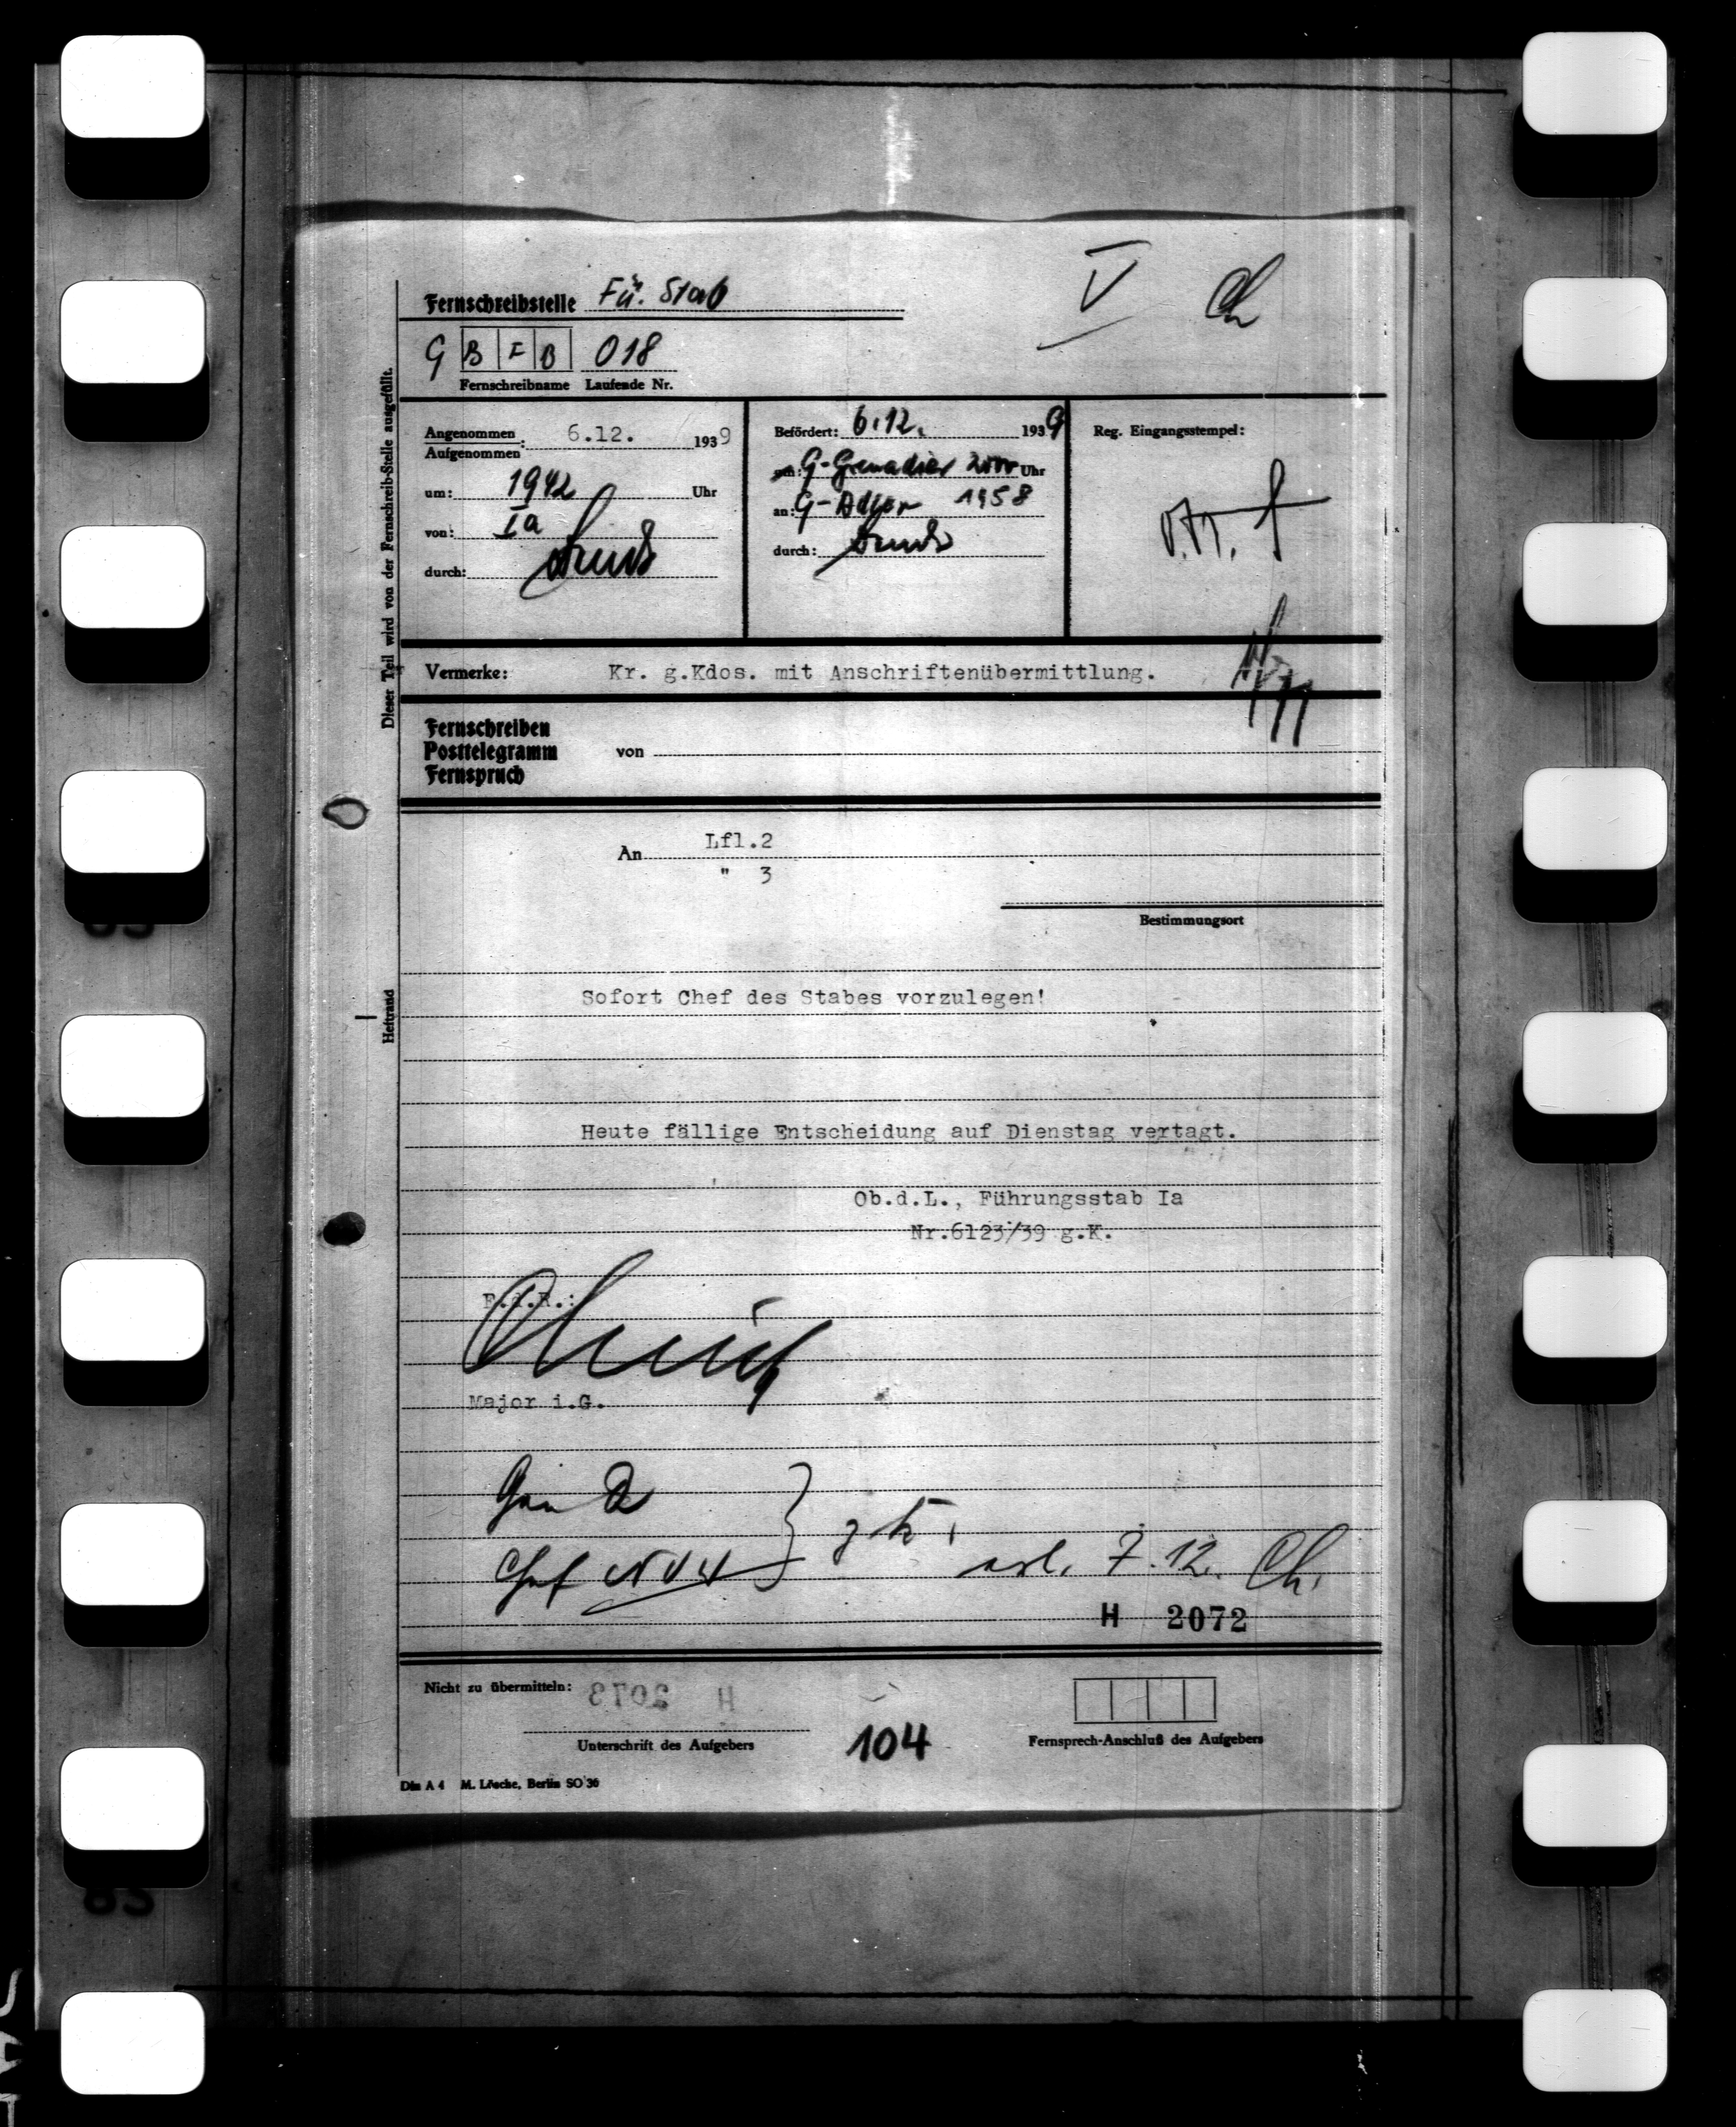 V Ch
Fernschreibstelle Fü. Stab
G B F B 018
Fernschreibname Laufende Nr.
Dieser Teil wird von der Fernschreib-Stelle ausgefüllt.
Angenommen
Aufgenommen : 6.12. 1939
um: 1942 Uhr
von: Ia
durch:
Befördert: 6.12. 1939
um: G-Grenadier 2000 Uhr
an: G-Adler 1958
durch:
Reg. Eingangsstempel:
Vermerke: Kr. g.Kdos. mit Anschriftenübermittlung.
Fernschreiben
Posttelegramm von
Fernspruch
An Lfl.2
" 3
Bestimmungsort
Heftrand
Sofort Chef des Stabes vorzulegen!
Heute fällige Entscheidung auf Dienstag vertagt.
Ob.d.L., Führungsstab Ia
Nr.6123/39 g.K.
F.d.R.:
Major i.G.
Gen Q
Chef NVW
7.12. Ch.
H 2072
Nicht zu übermitteln: H 2073
Unterschrift des Aufgebers
104
Fernsprech-Anschluß des Aufgebers
Din A 4 M. Lösche, Berlin SO 36